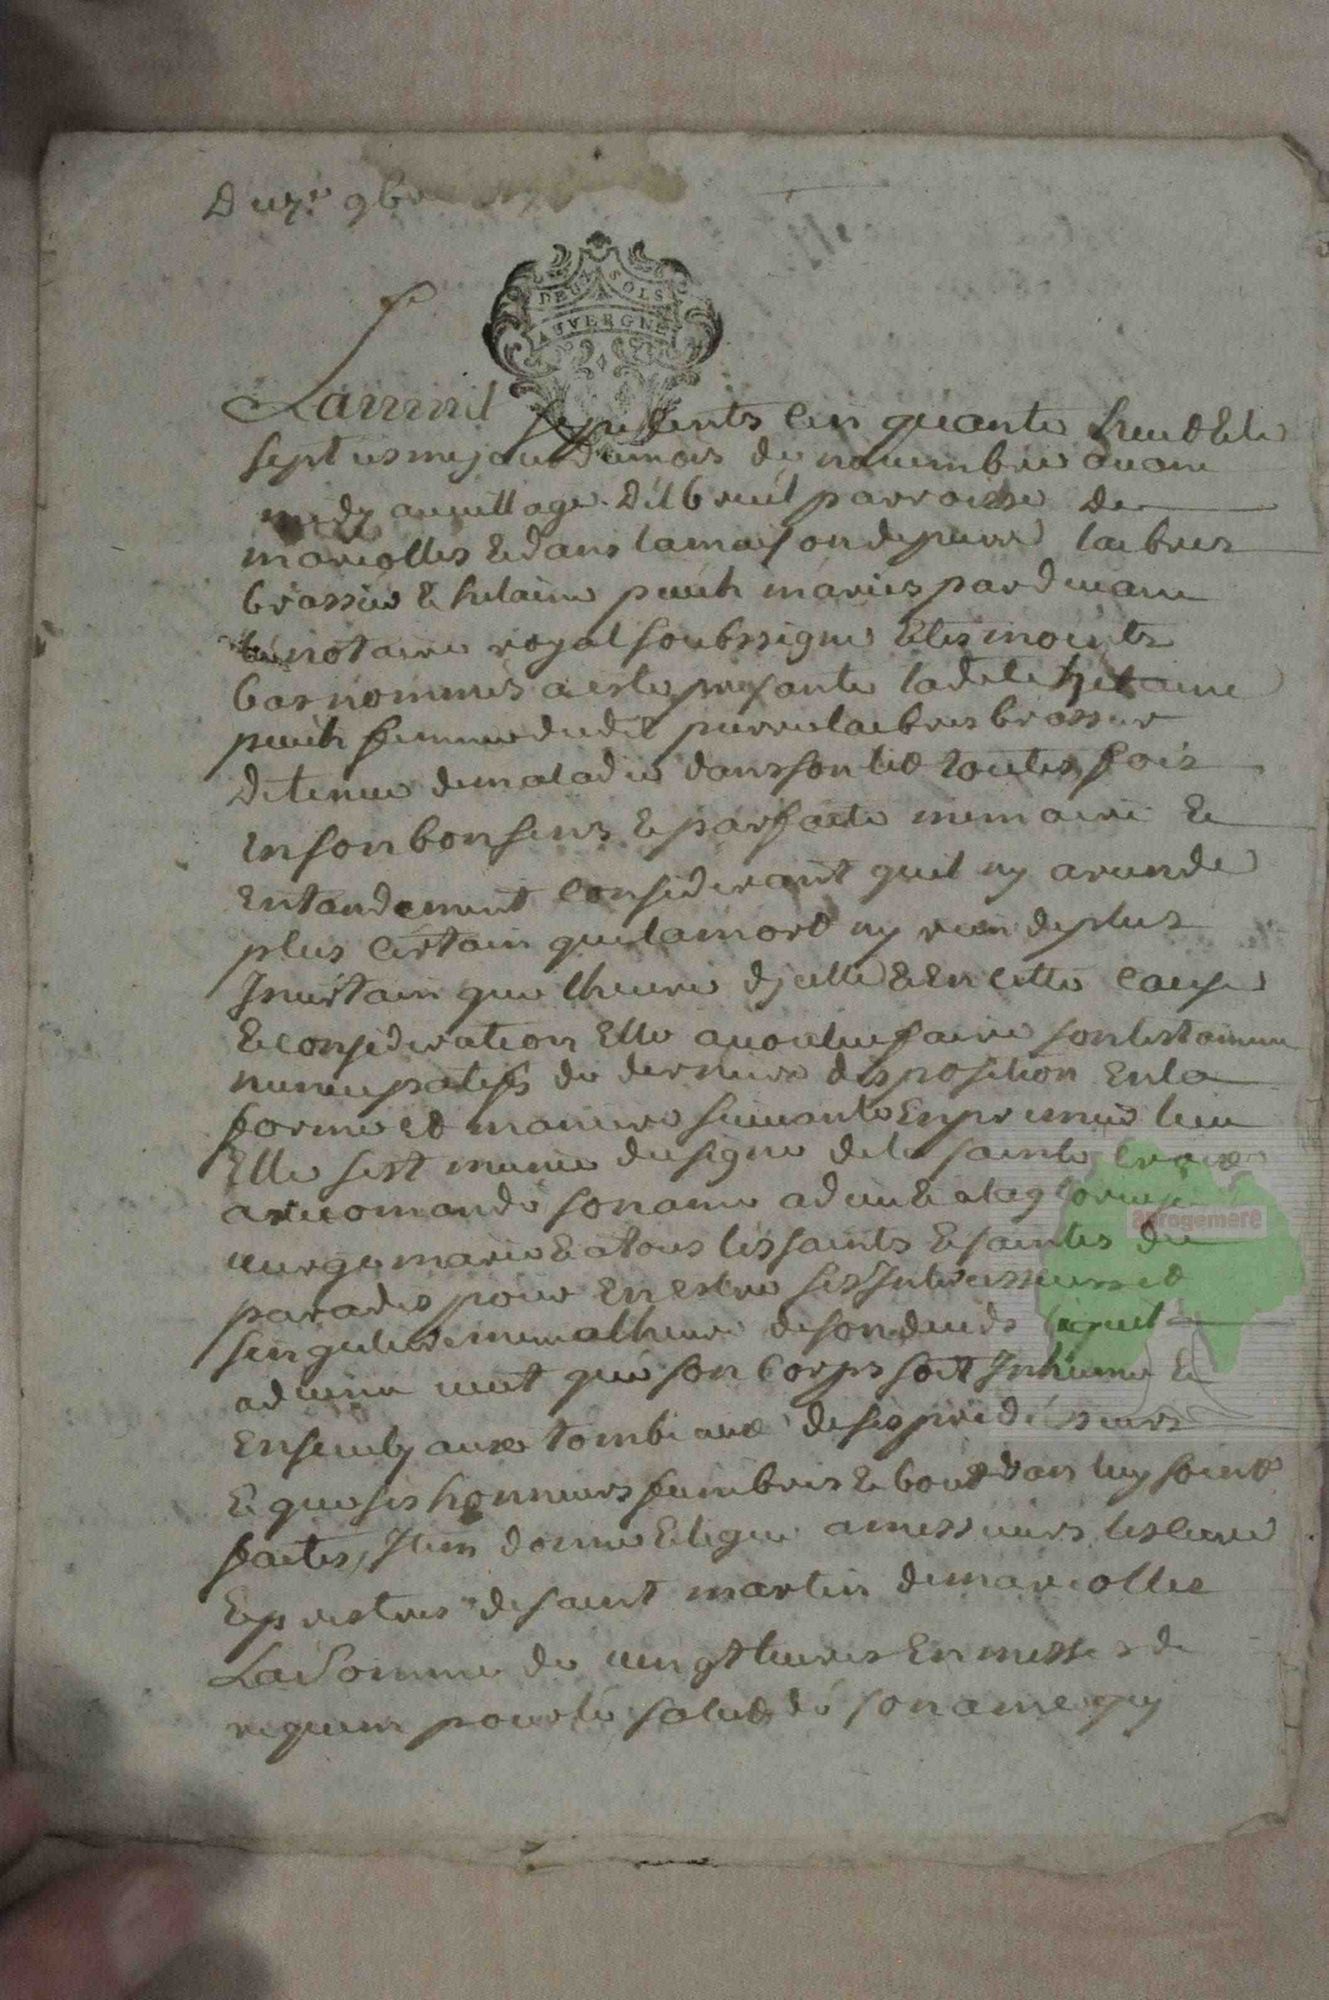 Du 7e 9b
DEUX SOLS
AUVERGNE
Lan mil
sept cents cin quante huit & le
septiesme jour du mois de novembre avant
midy au village del breuil parroisse de
marcolles & dans la maison de pierre
brassier & helaine puech mariés pardevant
notaire royal soubssigné & tesmoints
bas nommés a este presante ladite helaine
puech femme dudit pierre brassier
detenue de maladie dans son lict toutes fois
en son bon sens & parfaite memoire &
entandement considerant quil ny a rien de
plus certain que la mort ny rien de plus
Incertain que lheure dycelle & en cette cause
& consideration elle a voulu faire son testament
nuncupatif de derniere disposition en la
forme et maniere suivante en premier lieu
elle sest munie du signe de la sainte croix
a recomandé son ame a dieu & a la glorieuse
vierge marie & a tous les saints & saintes du
paradis pour en estre ses Intercesseurs et
singulierement a lheure de son deceds lequel
advenu veut que son corps soit Inhumé &
ensevely aux tombeaux de ses predecesseurs
& que ses honneurs funebres & bout dan luy soint
faites, Item donne & legue a messieurs les curé
& prestres de saint martin de marcolles
La somme de vingt livres en messes de
requiem pour le salut de son ame quy
aprogemere